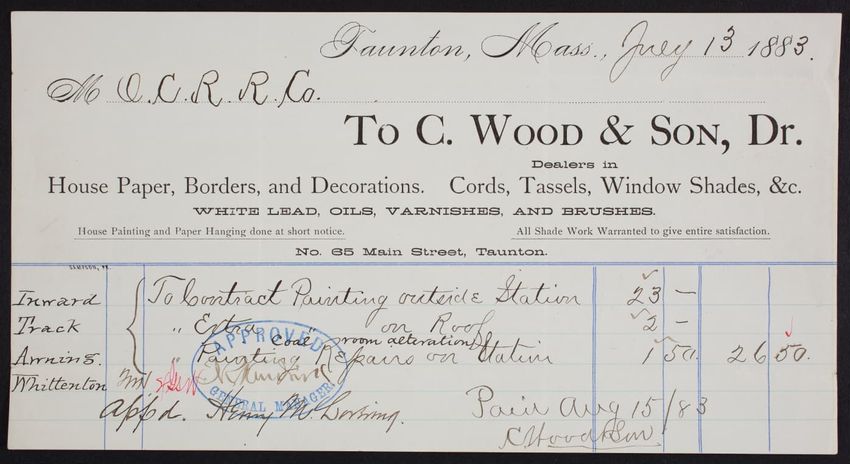 Taunton, Mass., July 13 1883.
M O.C.R.R.Co.
To C. Wood & Son, Dr.
Dealers in
House Paper, Borders, and Decorations. Cords, Tassels, Window Shades, &c.
WHITE LEAD, OILS, VARNISHES, AND BRUSHES.
House Painting and Paper Hanging done at short notice. All Shade Work Warranted to give entire satisfaction.
No. 65 Main Street, Taunton.
SAMPSON, PR.
Inward To Contract Painting outside Station 23 –
Track " Extra " on Roof 2 –
Coal room alterations
Awning. " Painting Repairs on Station 1 50. 26 50.
Whittenton
APPROVED
GENERAL MANAGER.
App'd. Henry M.
Paid Aug 15/83
C Wood & Son